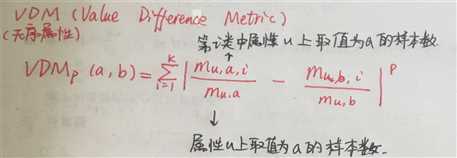 VDM (Value Difference Metric)
(无序属性)
第i类中属性u上取值为a的样本数
VDMp (a, b) = \sum_{i=1}^{k} | \frac{m_{u,a,i}}{m_{u,a}} - \frac{m_{u,b,i}}{m_{u,b}} |^p
属性u上取值为a的样本数.